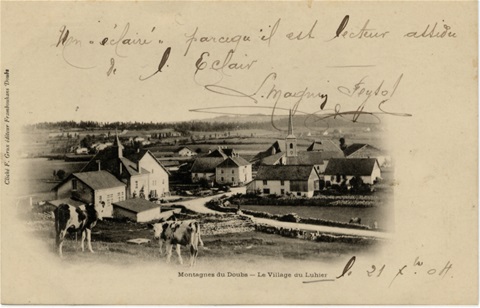 Un "éclairé" parcequ'il est lecteur assidu
de l'Eclair
L. Magnin Feysot
Cliché F. Gros éditeur Frambouhans Doubs
Montagnes du Doubs — Le Village du Luhier
le 21 Xbre 04